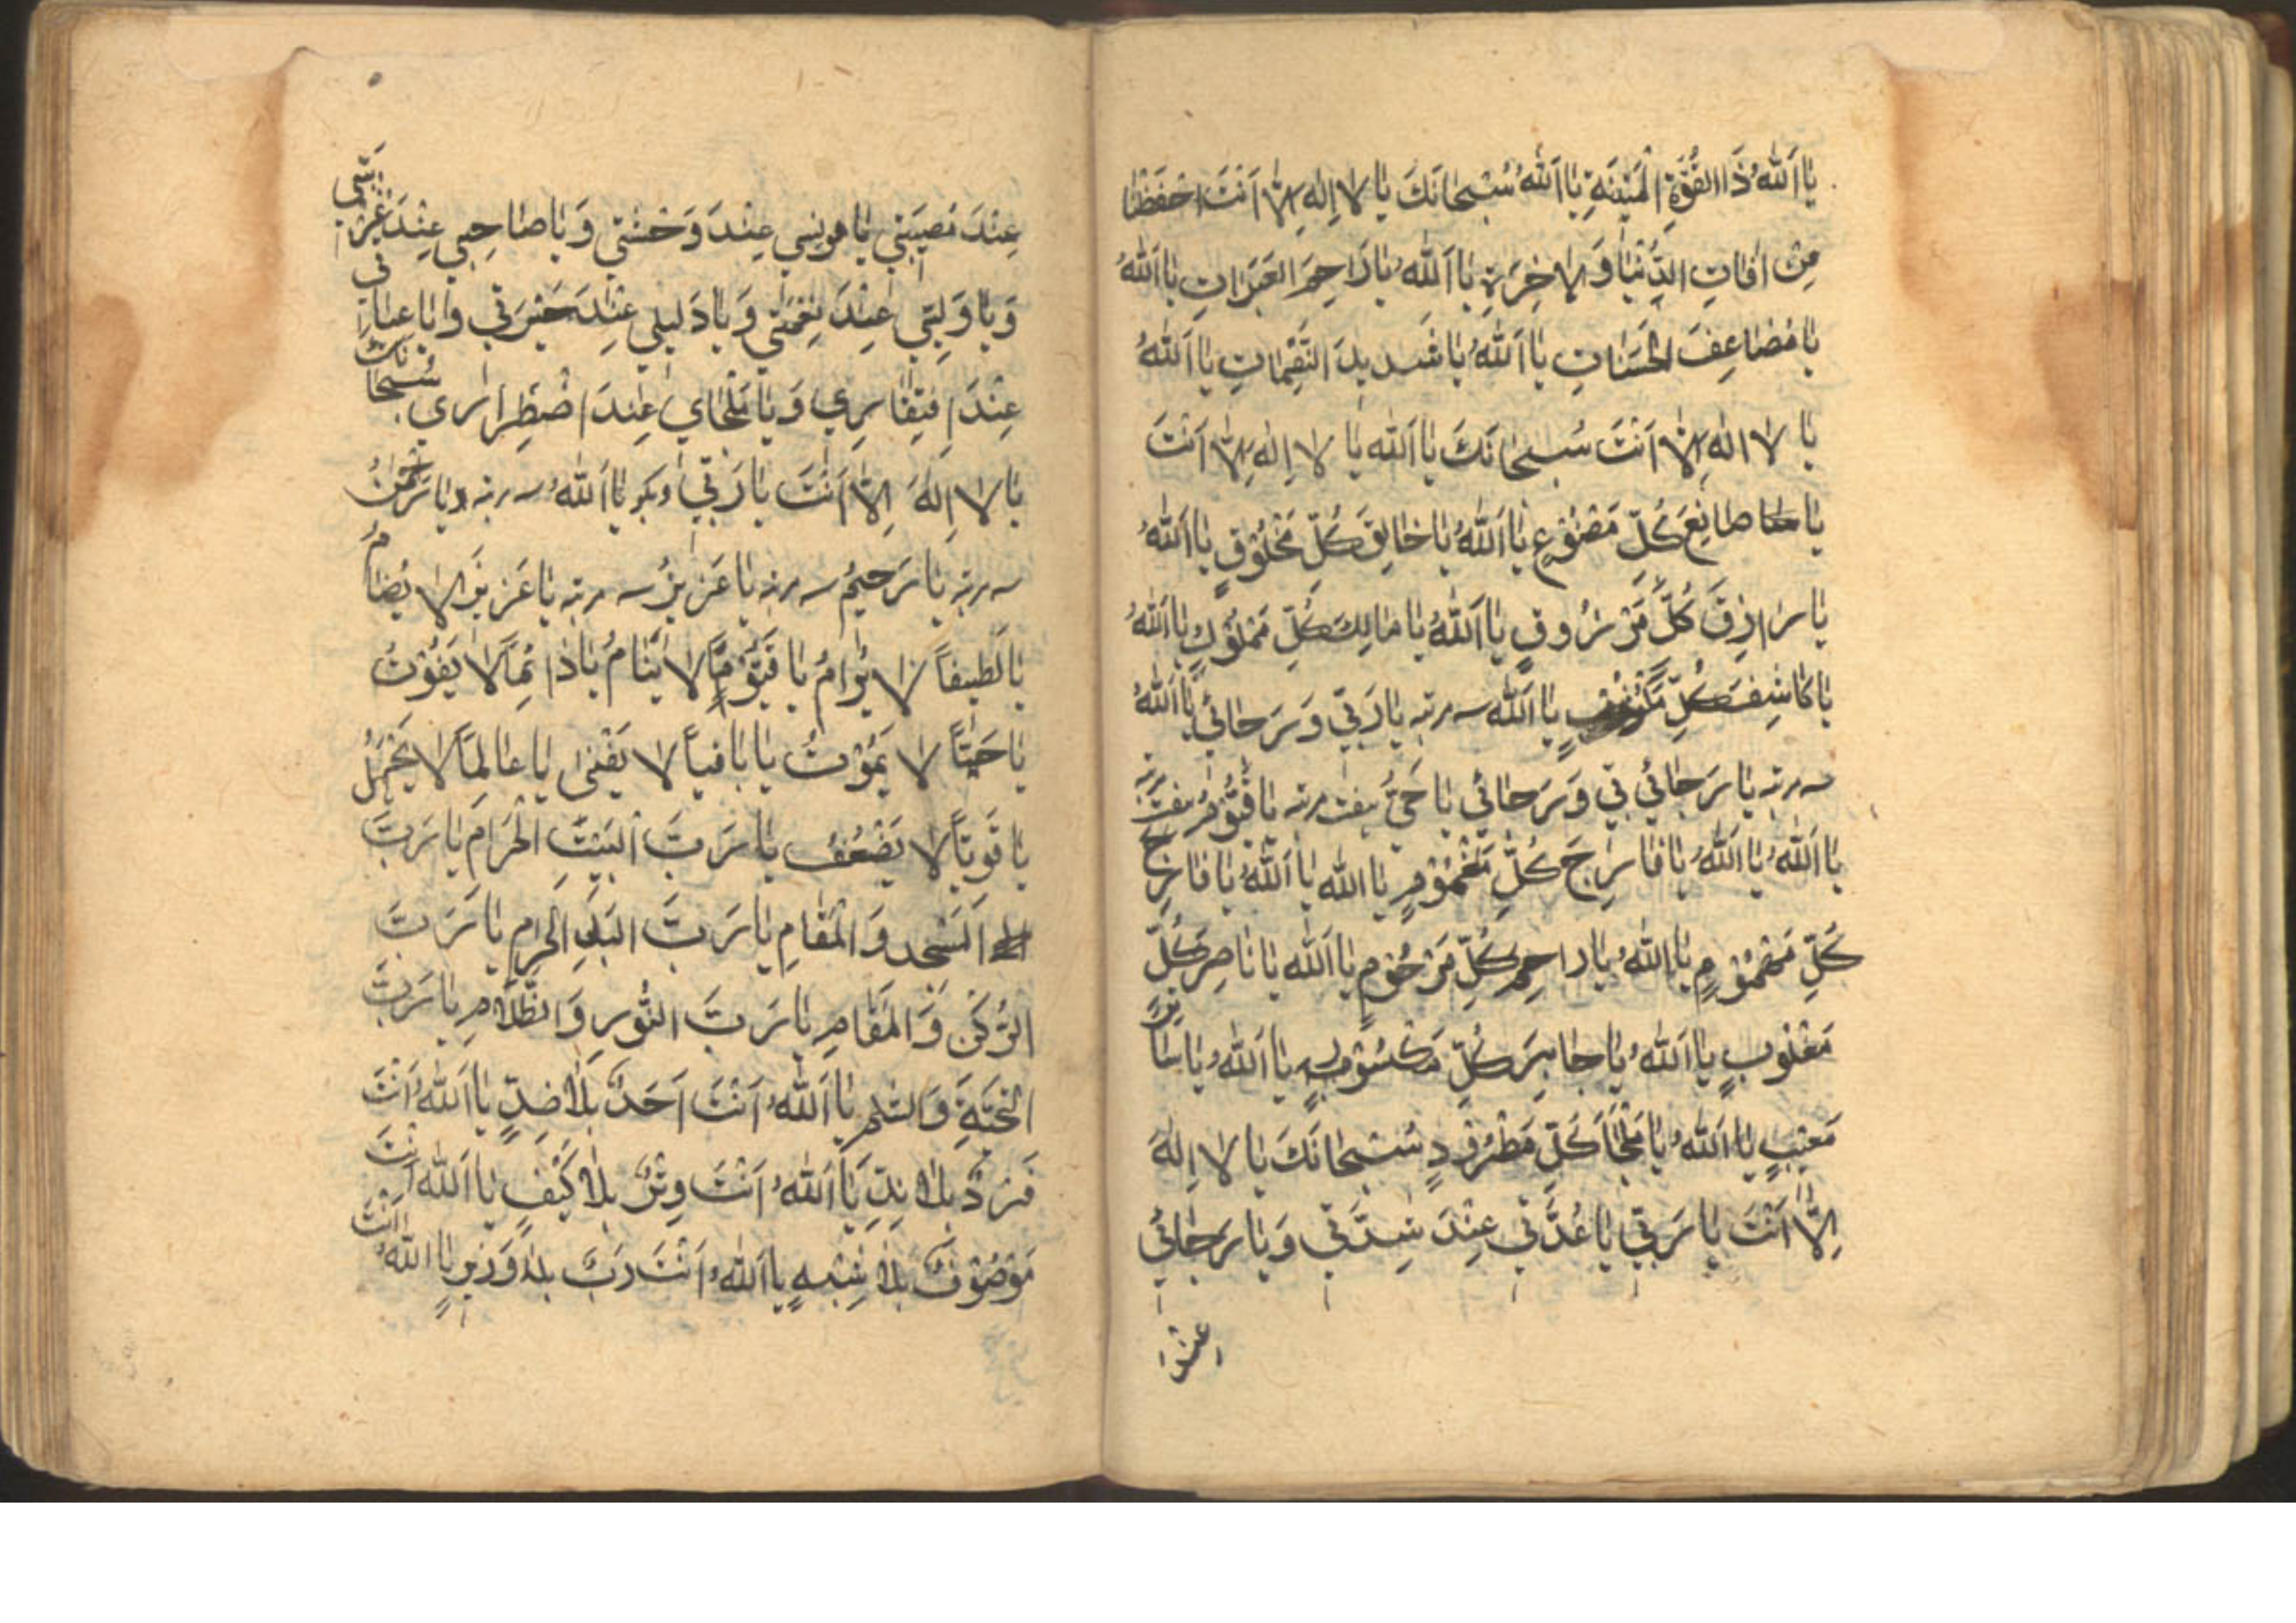 يَا اَللّٰهُ ذَا الْقُوَّةِ الْمَتِينَةِ يَا اَللّٰهُ سُبْحَانَكَ يَا لَا اِلٰهَ اِلَّا اَنْتَ احْفَظْنَا
مِنْ اٰفَاتِ الدُّنْيَا وَالْاٰخِرَةِ يَا اَللّٰهُ يَا رَاحِمَ الْعَبَرَاتِ يَا اَللّٰهُ
يَا مُضَاعِفَ الْحَسَنَاتِ يَا اَللّٰهُ يَا شَدِيدَ النَّقِمَاتِ يَا اَللّٰهُ
يَا لَا اِلٰهَ اِلَّا اَنْتَ سُبْحَانَكَ يَا اَللّٰهُ يَا لَا اِلٰهَ اِلَّا اَنْتَ
يَا صَانِعَ كُلِّ مَصْنُوْعٍ يَا اَللّٰهُ يَا خَالِقَ كُلِّ مَخْلُوْقٍ يَا اَللّٰهُ
يَا رَازِقَ كُلِّ مَرْزُوقٍ يَا اَللّٰهُ يَا مَالِكَ كُلِّ مَمْلُوْكٍ يَا اَللّٰهُ
يَا كَاشِفَ كُلِّ يَا اَللّٰه سه مرتبه يَا رَبِّي وَرَجَائِي يَا اَللّٰهُ
سه مرتبه يَا رَجَائِي بِي وَرَجَائِي يَا حَيُّ هفت مرتبه يَا قَيُّوْمُ هفت مرتبه
يَا اَللّٰهُ يَا اَللّٰهُ يَا فَارِجَ كُلِّ مَغْمُوْمٍ يَا اللّٰه يَا اَللّٰهُ يَا فَارِجَ
كُلِّ مَهْمُوْمٍ يَا اَللّٰهُ يَا رَاحِمَ كُلِّ مَرْحُوْمٍ يَا اَللّٰه يَا نَاصِرَ كُلِّ
مَغْلُوبٍ يَا اَللّٰهُ يَا جَابِرَ كُلِّ مَكْسُوْرٍ يَا اَللّٰهُ يَا سَاتِرَ
مَعْيُبٍ يَا اَللّٰهُ يَا مَلْجَاَ كُلِّ مَطْرُوْدٍ سُبْحَانَكَ يَا لَا اِلٰهَ
اِلَّا اَنْتَ يَا رَبِّي يَا عُدَّتِي عِنْدَ شِدَّتِي وَيَا رَجَائِي
عِنْدَ
عِنْدَ مُصِيبَتِي يَا مُونِسِي عِنْدَ وَحْشَتِي وَيَا صَاحِبِي عِنْدَ غُرْبَتِي
وَيَا وَلِيِّي عِنْدَ نِعْمَتِي وَيَا دَلِيلِي عِنْدَ حَيْرَتِي وَيَا غِيَاثِي
عِنْدَ افْتِقَارِي وَيَا مَلْجَاي عِنْدَ اضْطِرَارِي سُبْحَانَكَ
يَا لَا اِلٰهَ اِلَّا اَنْتَ يَا رَبِّي وبكو يَا اَللّٰهُ سه مرتبه ويَا رَحْمٰنُ
سه مرتبه يَا رَحِيمُ سه مرتبه يَا عَزِيزُ سه مرتبه يَا عَزِيزًا لَا يُضَامُ
يَا لَطِيفًا لَا يُرَامُ يَا قَيُّوْمًا لَا يَنَامُ يَا دَائِمًا لَا يَفُوْتُ
يَا حَيًّا لَا يَمُوْتُ يَا بَاقِيًا لَا يَفْنٰى يَا عَالِمًا لَا يَجْهَلُ
يَا قَوِيًّا لَا يَضْعُفُ يَا رَبَّ الْبَيْتِ الْحَرَامِ يَا رَبَّ
اَلْمَسْجِدِ وَالْمَقَامِ يَا رَبَّ الْبَلَدِ الْحَرَامِ يَا رَبَّ
الرُّكْنِ وَالْمَقَامِ يَا رَبَّ النُّورِ وَالظَّلَامِ يَا رَبَّ
التَّحِيَّةِ وَالسَّلَامِ يَا اَللّٰهُ اَنْتَ اَحَدٌ بِلَا ضِدٍّ يَا اَللّٰهُ اَنْتَ
فَرْدٌ بِلَا نِدٍّ يَا اَللّٰهُ اَنْتَ وِتْرٌ بِلَا كَيْفٍ يَا اَللّٰه اَنْتَ
مَوْصُوْفٌ بِلَا شِبْهٍ يَا اَللّٰهُ اَنْتَ رَبٌّ بِلَا وَزِيرٍ يَا اَللّٰهُ اَنْتَ